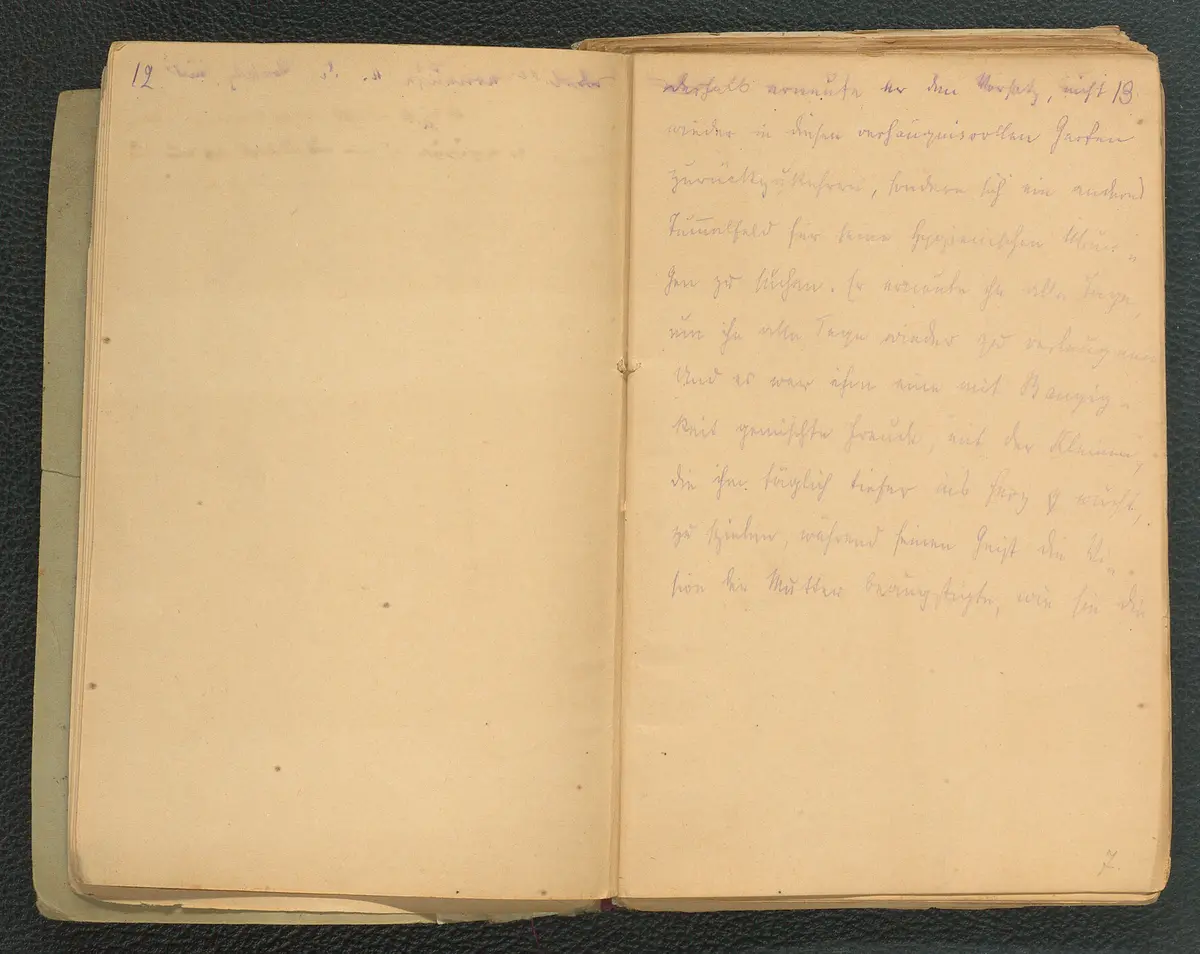 12
deshalb erneute er den Vorsatz, nicht 13
wieder in diesen verhängnisvollen Garten
zurückzukehren, sondern sich ein anderes
Tummelfeld für seine hygienischen Übun-
gen zu suchen. Er erneute ihn alle Tage,
um ihn alle Tage wieder zu verleugnen.
Und es war ihm eine mit Bangig-
keit gemischte Freude, mit der Kleinen,
die ihm täglich tiefer ins Herz wuchs,
zu spielen, während seinen Geist die Vi-
sion der Mutter beängstigte, wie sie die
7.